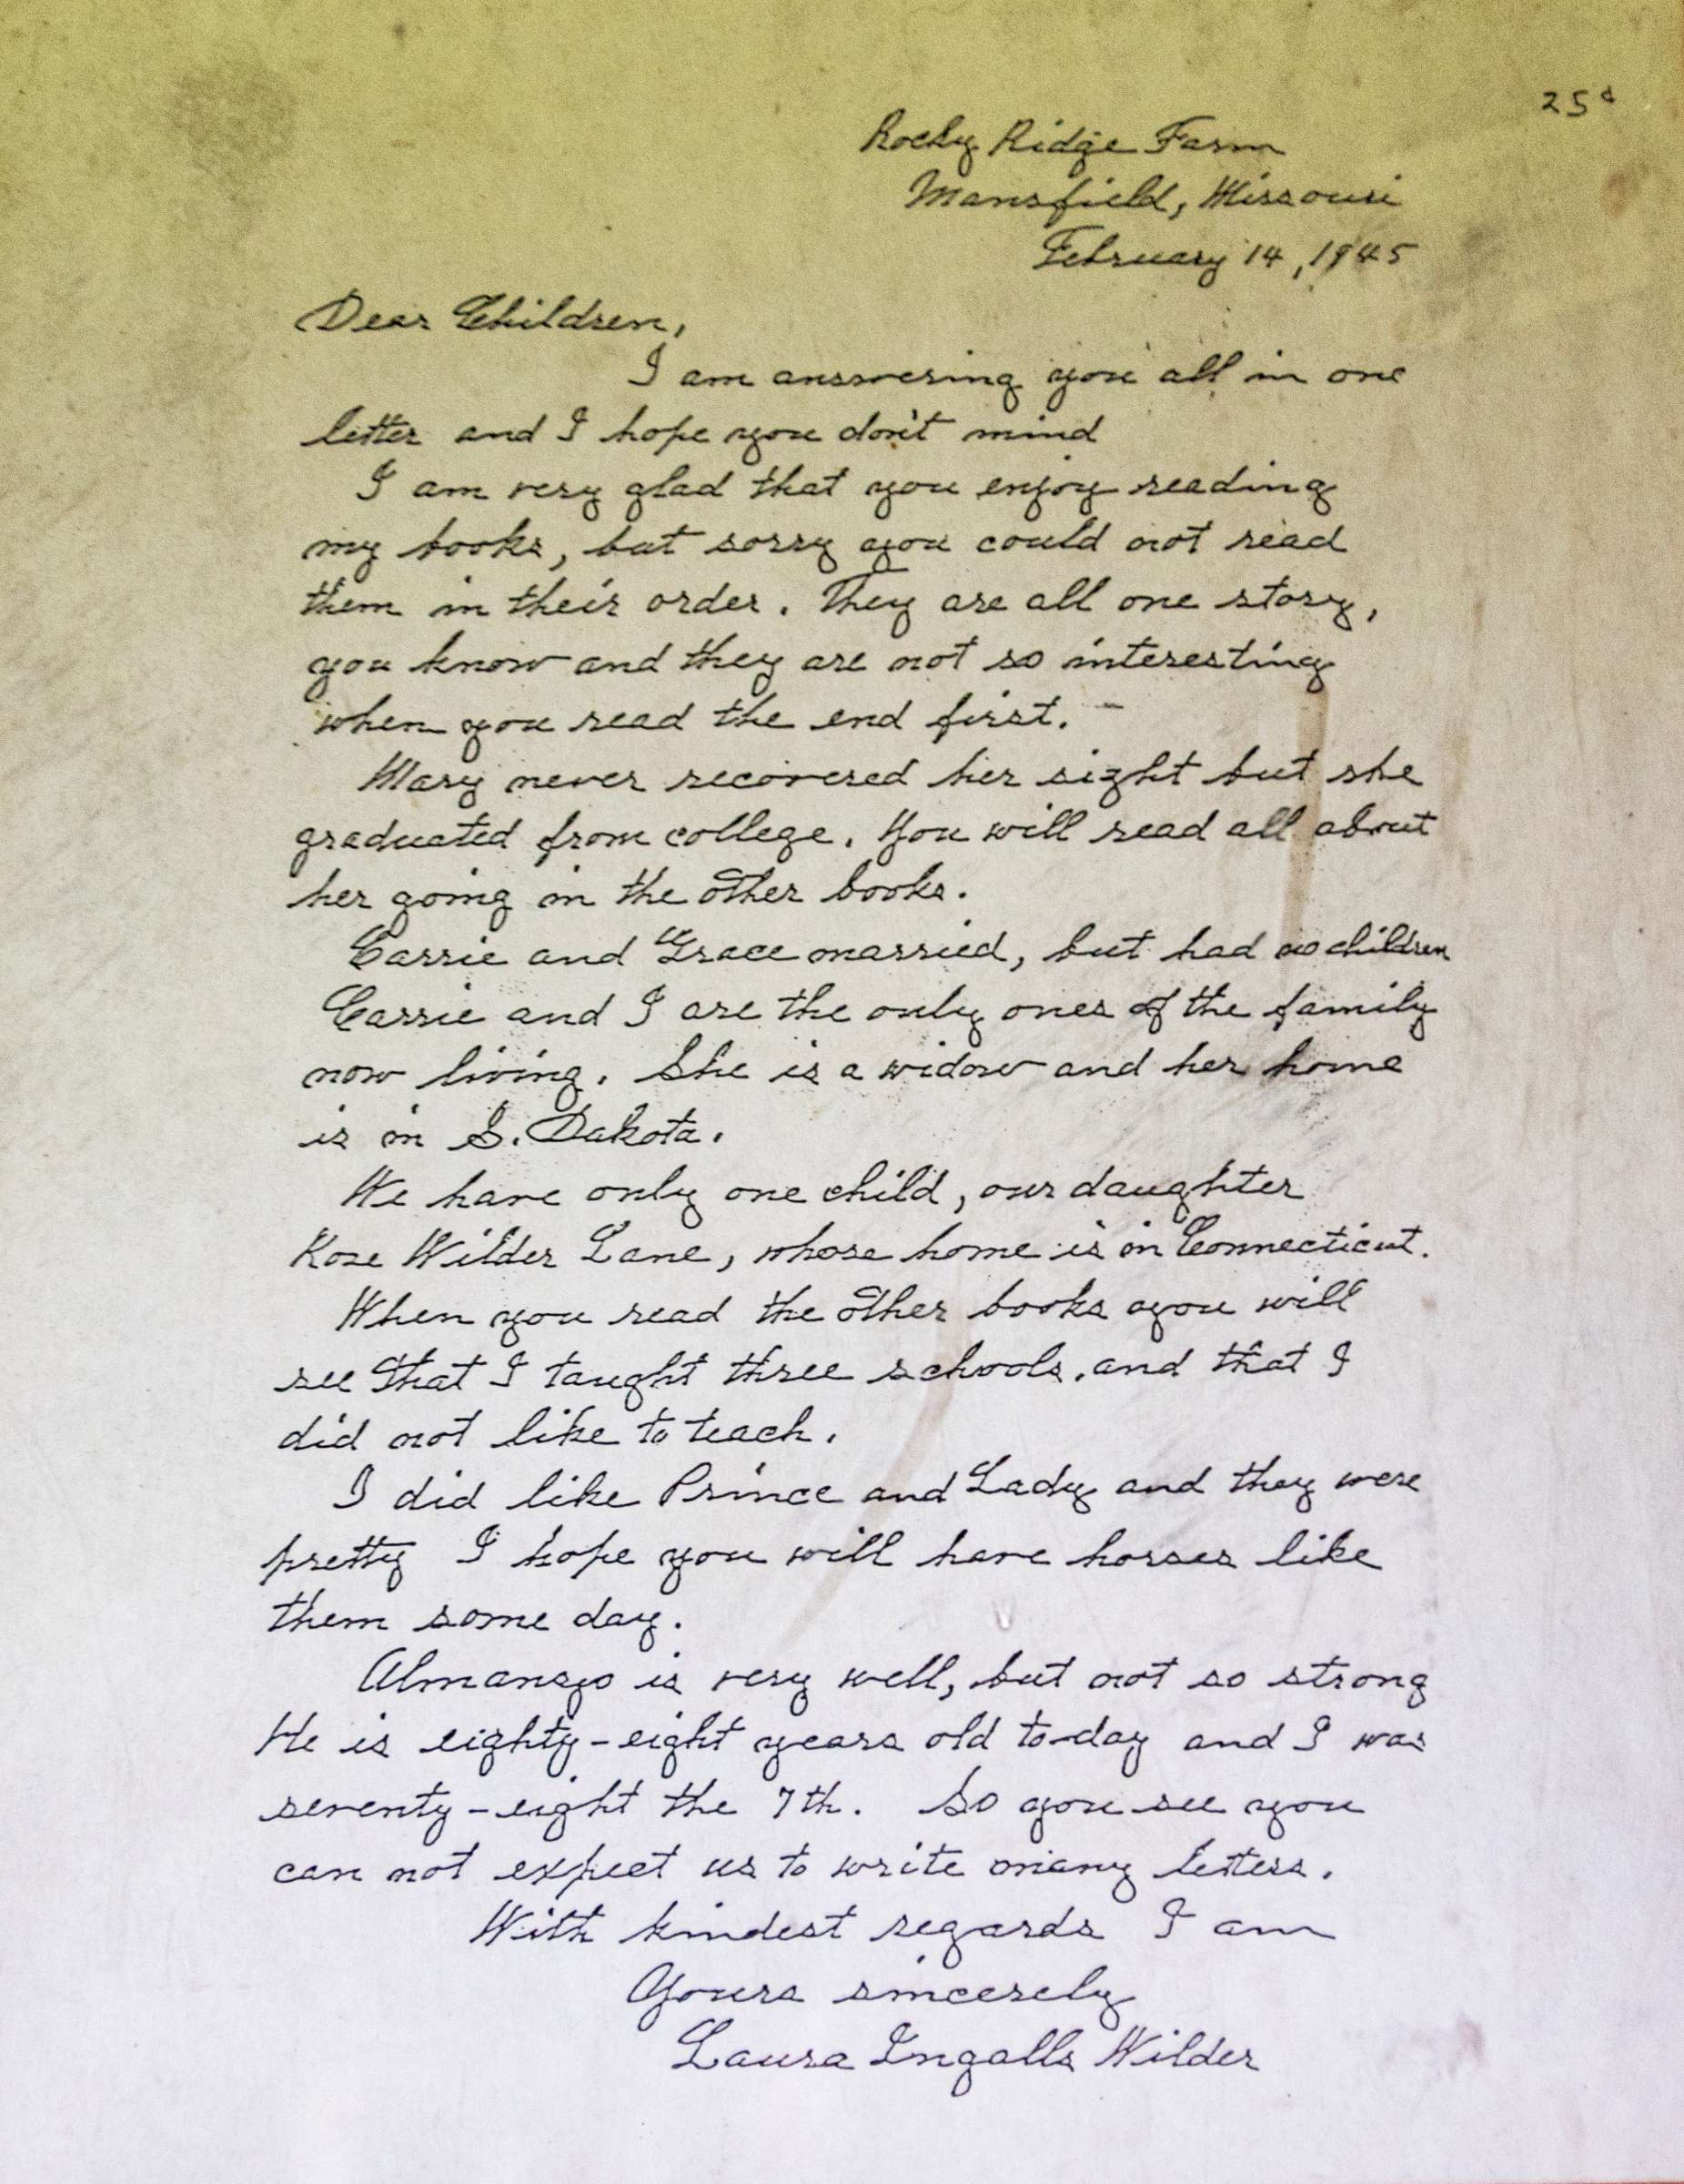 25¢
Rocky Ridge Farm
Mansfield, Missouri
February 14, 1945
Dear Children,
I am answering you all in one
letter and I hope you don't mind
I am very glad that you enjoy reading
my books, but sorry you could not read
them in their order. They are all one story,
you know and they are not so interesting
when you read the end first.
Mary never recovered her sight but she
graduated from college. You will read all about
her going in the other books.
Carrie and Grace married, but had no children
Carrie and I are the only ones of the family
now living. She is a widow and her home
is in S. Dakota.
We have only one child, our daughter
Rose Wilder Lane, whose home is in Connecticut.
When you read the other books you will
see that I taught three schools, and that I
did not like to teach.
I did like Prince and Lady and they were
pretty I hope you will have horses like
them some day.
Almanzo is very well, but not so strong
He is eighty-eight years old to-day and I was
seventy-eight the 7th. So you see you
can not expect us to write many letters.
With kindest regards I am
Yours sincerely
Laura Ingalls Wilder